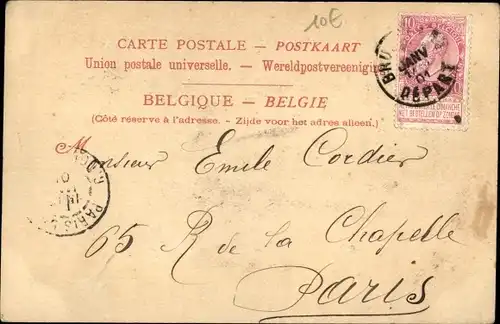 10€
CARTE POSTALE — POSTKAART
Union postale universelle. — Wereldpostvereeniging
BELGIQUE — BELGIE
(Côté réservé à l'adresse. - Zijde voor het adres alleen.)
10
BRU
JANV
01
DÉPART
NE PAS LIVRER LE DIMANCHE
NIET BESTELLEN OP ZONDAG
PARIS
Monsieur Emile Cordier
65 R de la Chapelle
Paris